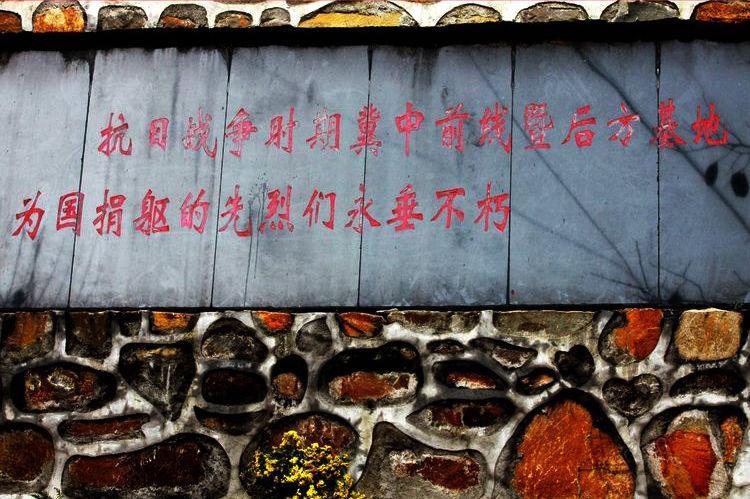 抗日战争时期冀中前线暨后方基地
为国捐躯的先烈们永垂不朽